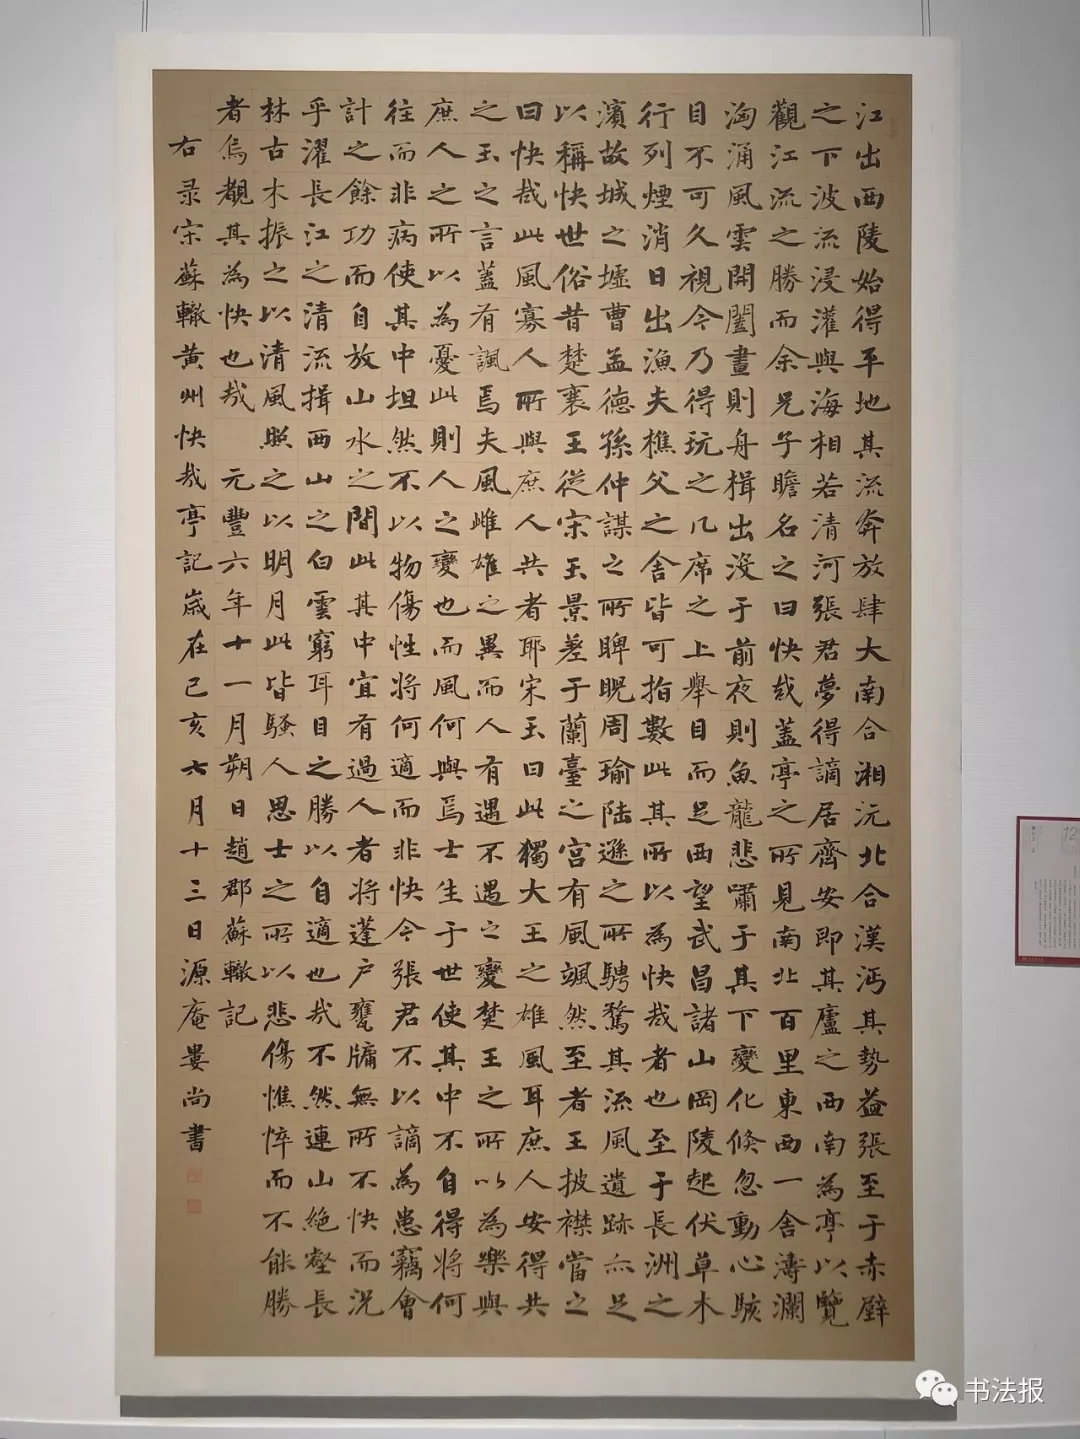 江出西陵始得平地其流奔放肆大南合湘沅北合漢沔其勢益張至于赤壁
之下波流浸灌與海相若清河張君夢得謫居齊安即其廬之西南為亭以覽
觀江流之勝而余兄子瞻名之曰快哉蓋亭之所見南北百里東西一舍濤瀾
洶涌風雲開闔晝則舟楫出沒于前夜則魚龍悲嘯于其下變化倏忽動心駭
目不可久視今乃得玩之几席之上舉目而足西望武昌諸山岡陵起伏草木
行列煙消日出漁夫樵父之舍皆可指數此其所以為快哉者也至于長洲之
濱故城之墟曹孟德孫仲謀之所睥睨周瑜陸遜之所騁騖其流風遺跡亦足
以稱快世俗昔楚襄王從宋玉景差于蘭臺之宮有風颯然至者王披襟當之
曰快哉此風寡人所與庶人共者耶宋玉曰此獨大王之雄風耳庶人安得共
之玉之言蓋有諷焉夫風雌雄之異而人有遇不遇之變楚王之所以為樂與
庶人之所以為憂此則人之變也而風何與焉士生于世使其中不自得將何
往而非病使其中坦然不以物傷性將何適而非快今張君不以謫為患竊會
計之餘功而自放山水之間此其中宜有過人者將蓬户甕牖無所不快而況
乎濯長江之清流揖西山之白雲窮耳目之勝以自適也哉不然連山絕壑長
林古木振之以清風照之以明月此皆騷人思士之所以悲傷憔悴而不能勝
者烏覩其為快也哉 元豐六年十一月朔日趙郡蘇轍記
右录宋蘇轍黄州快哉亭記歲在己亥六月十三日源庵婁尚書
书法报